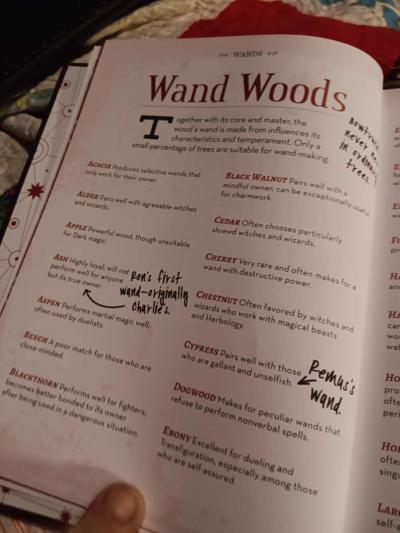 WANDS
Wand Woods
Together with its core and master, the
wood a wand is made from influences its
characteristics and temperament. Only a
small percentage of trees are suitable for wand-making.
never
in ordinary
trees.
ACACIA Produces selective wands that
only work for their owner.
ALDER Pairs well with agreeable witches
and wizards.
APPLE Powerful wood, though unsuitable
for Dark magic.
ASH Highly loyal; will not
perform well for anyone
but its true owner.
Ron's first
wand-originally
Charlie's.
ASPEN Performs martial magic well;
often used by duelists.
BEECH A poor match for those who are
close-minded.
BLACKTHORN Performs well for fighters;
becomes better bonded to its owner
after being used in a dangerous situation.
BLACK WALNUT Pairs well with a
mindful owner; can be exceptionally useful
for charmwork.
CEDAR Often chooses particularly
shrewd witches and wizards.
CHERRY Very rare and often makes for a
wand with destructive power.
CHESTNUT Often favored by witches and
wizards who work with magical beasts
and Herbology.
CYPRESS Pairs well with those
who are gallant and unselfish.
Remus's
wand.
DOGWOOD Makes for peculiar wands that
refuse to perform nonverbal spells.
EBONY Excellent for dueling and
Transfiguration, especially among those
who are self assured.